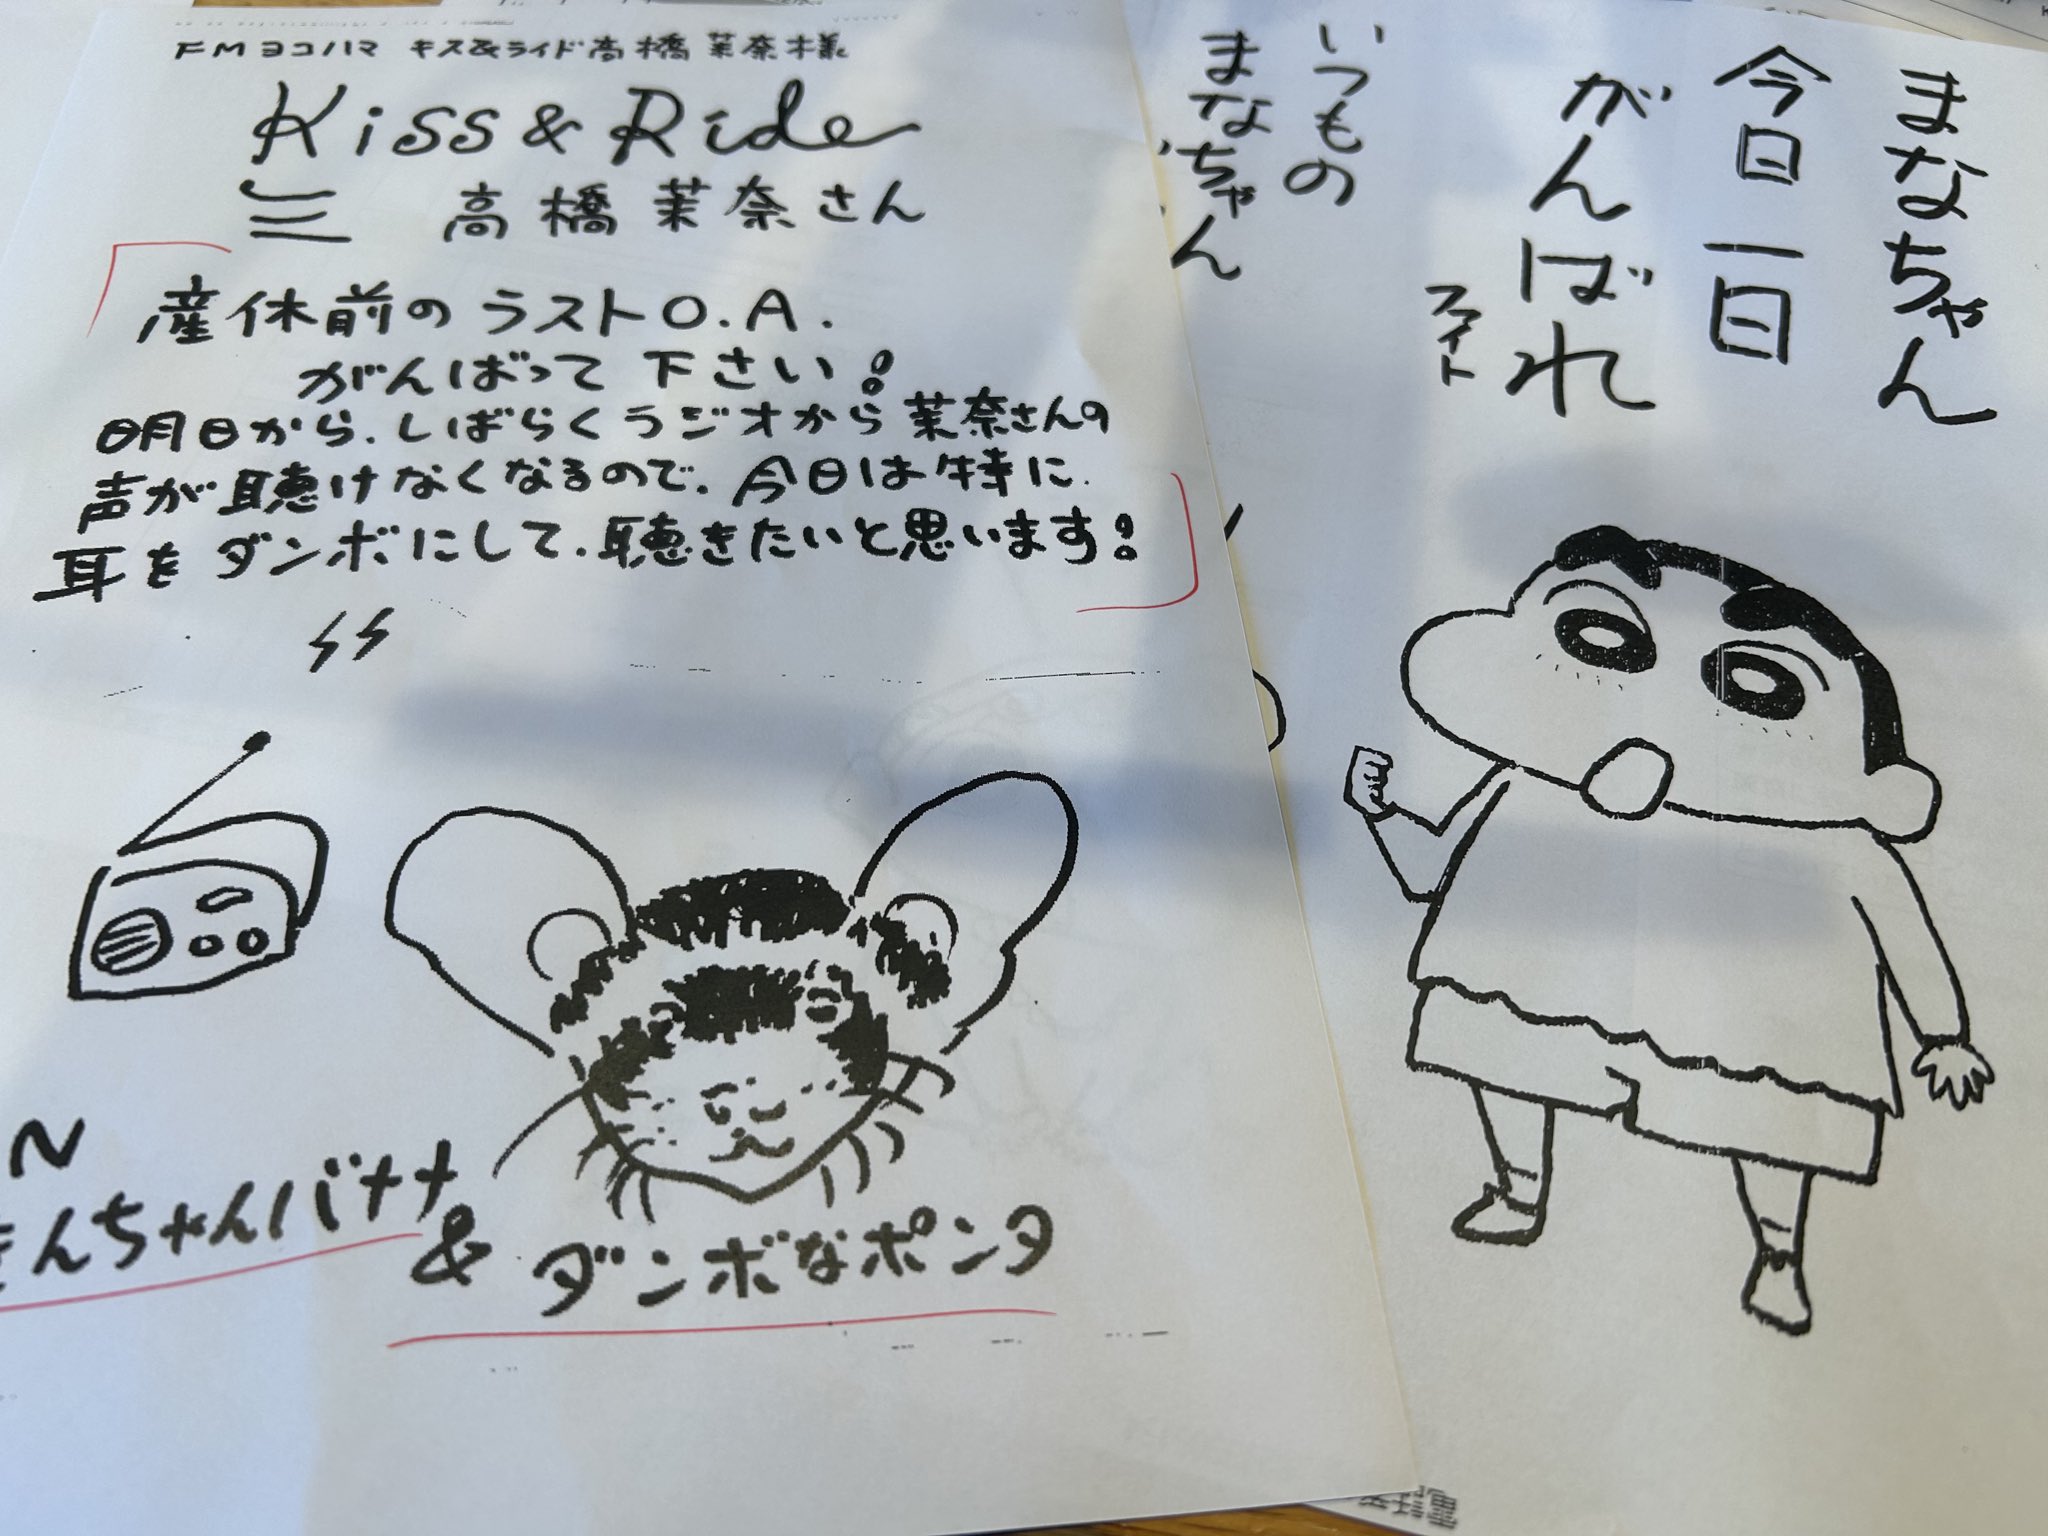 FMヨコハマ キス&ライド高橋茉奈様
Kiss & Ride
高橋茉奈さん
産休前のラストO.A.
がんばって下さい!
明日から、しばらくラジオから茉奈さんの
声が聴けなくなるので、今日は特に
耳をダンボにして、聴きたいと思います!
んちゃんバナナ
&
ダンボなポンタ
まなちゃん
今日一日
がんばれ
ファイト
いつもの
まなちゃん